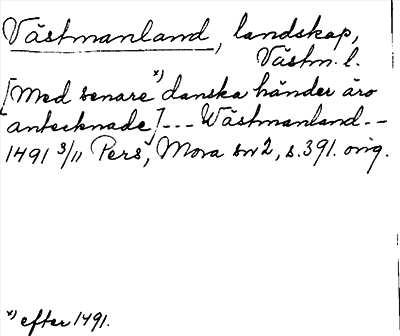 Västmanland, landskap,
Västm. l.
[Med senare *) danska händer äro
antecknade] --- Wästmanland --
1491 3/11 Pers, Mora sn 2, s. 391. orig.
*) efter 1491.